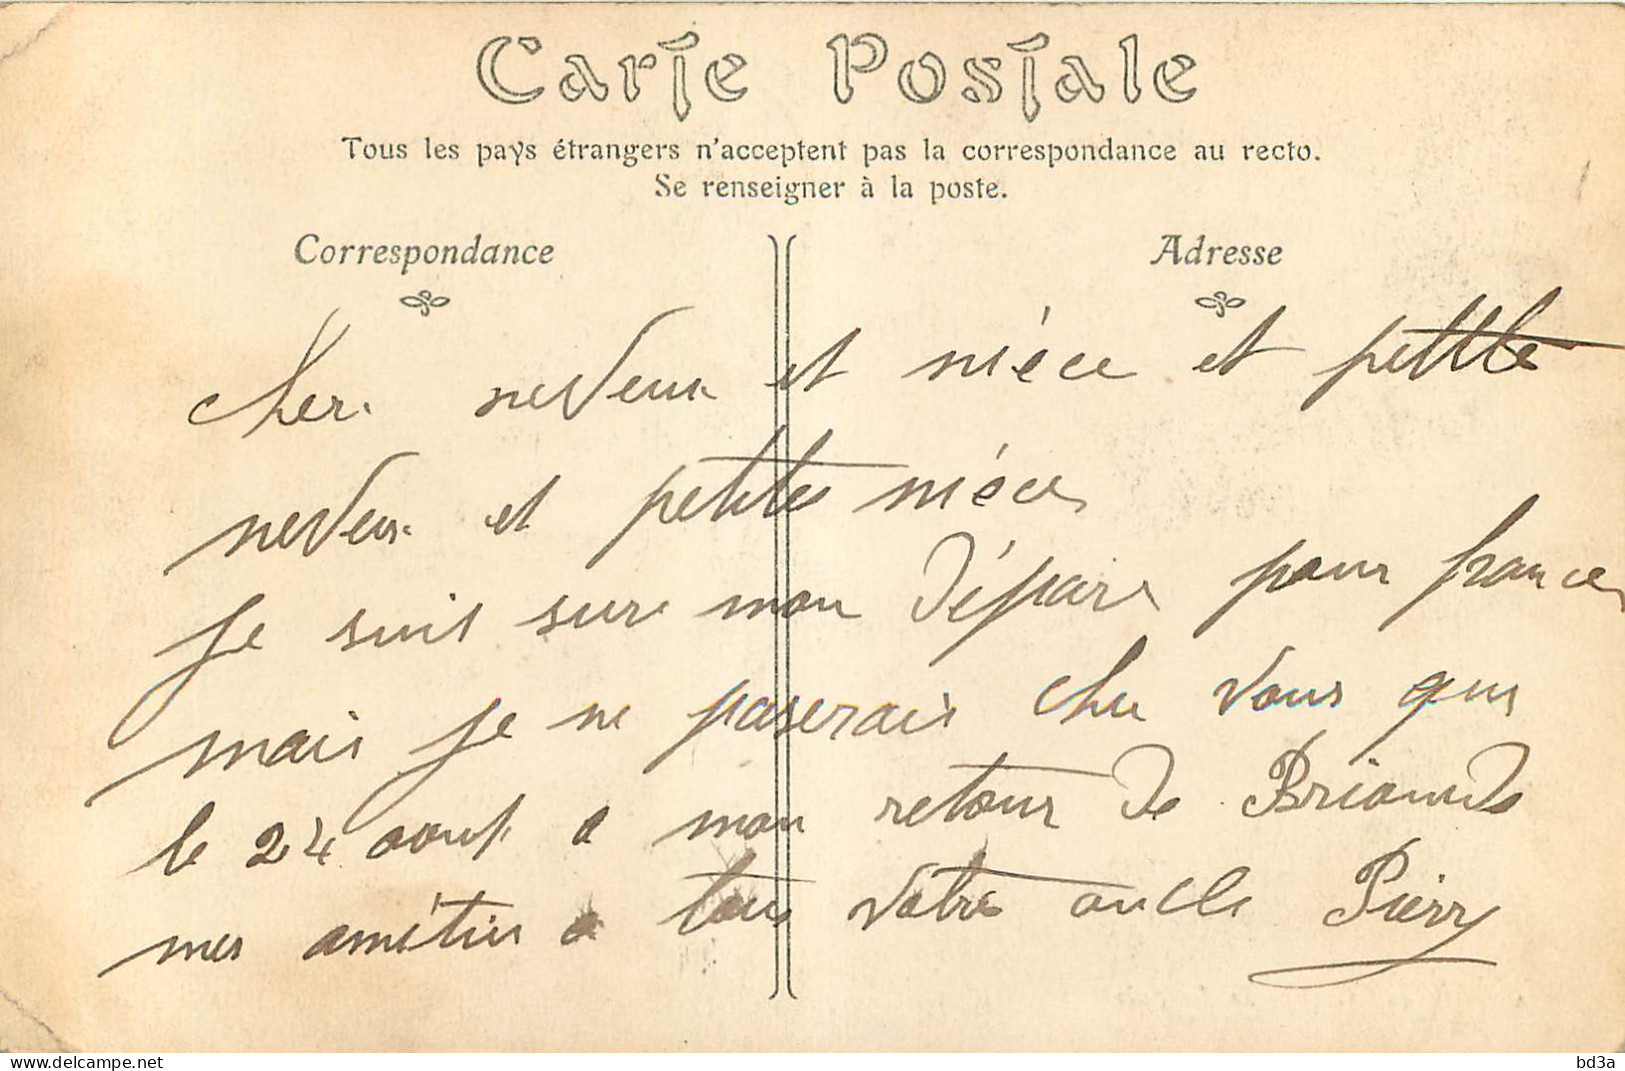 Carte Postale
Tous les pays étrangers n'acceptent pas la correspondance au recto.
Se renseigner à la poste.
Correspondance
Adresse
Cher neveux et niéce et petite
neveux et petites niéces
Je suis sure mon départ pour france
mais je ne paserais che vous que
le 24 aout a mon retour de Brioude
mes amétiés a tous votre oncle Pierre
https://www.delcampe.net
bd3a